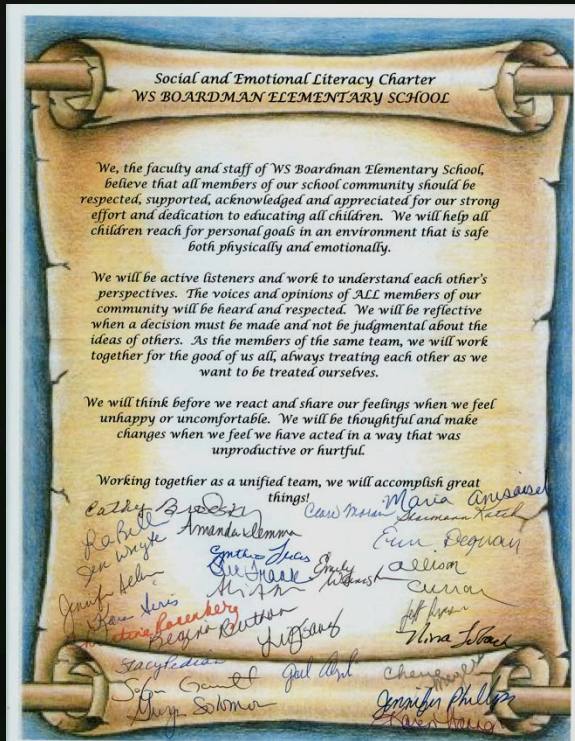 Social and Emotional Literacy Charter
WS BOARDMAN ELEMENTARY SCHOOL
We, the faculty and staff of WS Boardman Elementary School,
believe that all members of our school community should be
respected, supported, acknowledged and appreciated for our strong
effort and dedication to educating all children. We will help all
children reach for personal goals in an environment that is safe
both physically and emotionally.
We will be active listeners and work to understand each other's
perspectives. The voices and opinions of ALL members of our
community will be heard and respected. We will be reflective
when a decision must be made and not be judgmental about the
ideas of others. As the members of the same team, we will work
together for the good of us all, always treating each other as we
want to be treated ourselves.
We will think before we react and share our feelings when we feel
unhappy or uncomfortable. We will be thoughtful and make
changes when we feel we have acted in a way that was
unproductive or hurtful.
Working together as a unified team, we will accomplish great
things!
Cathy
Maria
Amanda
Jen Whyte
Erin
Cynthia
Sue Frank
Emily
Allison
Curran
Jennifer
Rosenberg
Regina
Jeff
Nina
Stacy
Gail
Cheryl
Solomon
Jennifer Phillips
Karen